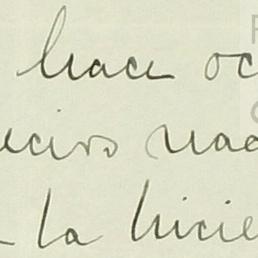 hace oc
eciros nad
la hicie